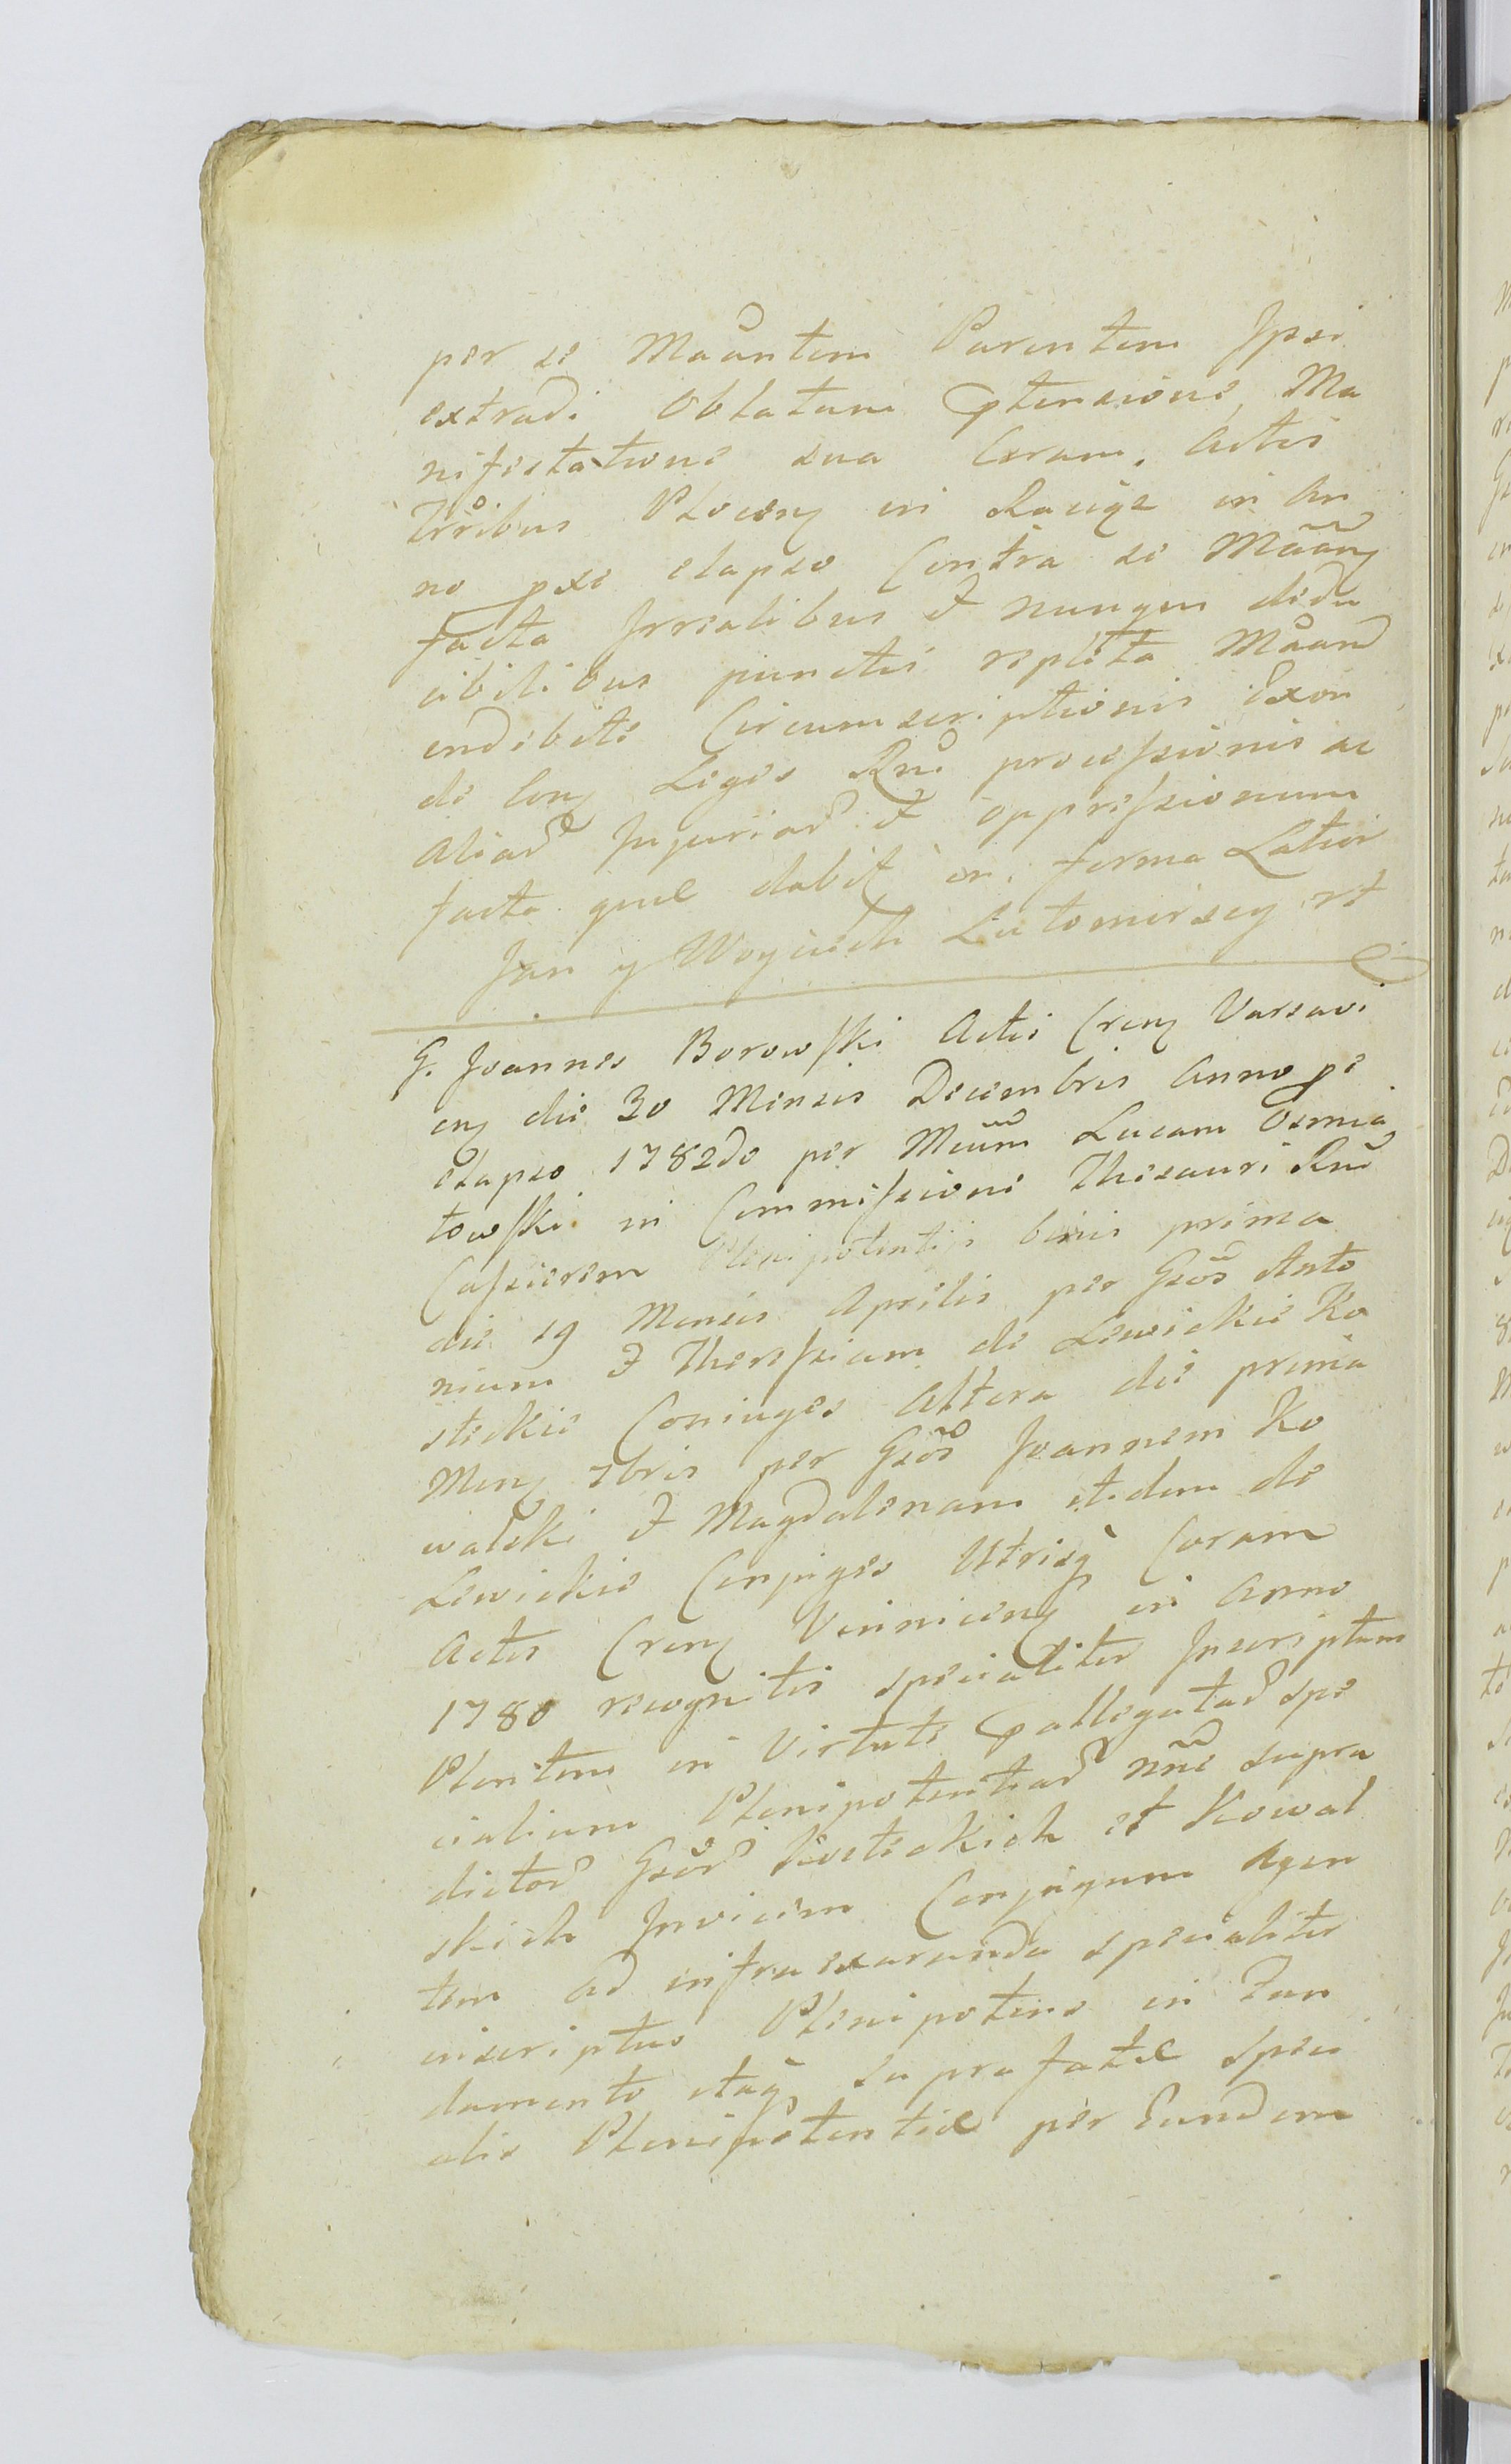 per se Maântem Parentem Ipsi
extradi oblatum ptensione, Ma
nifestatione sua Coram Actis
Trribus Plocen in Raciąż in An
no pxe elapso Contra se Maan
facta Irrealibus et nunquam dedu
cibilibus punctis repleta Maan
indebite Circumscriptionis Exon
de Con Leges Rni processionis ac
aliar Injuriar et oppressionum
facta quae dabit in forma Latior
Jan y Woyciech Lutomirscy rt
G. Joannes Borowski Actis Cren Varsavi
en die 30 Mensis Decembris Anno pe
elapso 1782do per Mcum Lucam Osmia
łowski in Commissione Thesauri Rni
Cassierem Plenipotentiis binis prima
die 19 Mensis Aprilis per Gsos Anto
nium et Theressiam de Lewickie Ko
steckie Coniuges Altera die prima
Men 7bris per Gsos Joannem Ko
walski et Magdalenam itidem de
Lewickie Conjuges Utrisq Coram
Actis Cren Vinnicen in Anno
1780 recognitis specialiter Inscriptum
Plentem in Virtute pallegatar spe
cialium Plenipotentiar nne supra
dictor Gsor Kosteckich et Kowal
skich Invicem Conjugum Agen
tem ad infra exaranda specialiter
inscriptus Plenipotens in Fun
damento itaq supra fatae speci
alis Plenipotentiae per Eundem